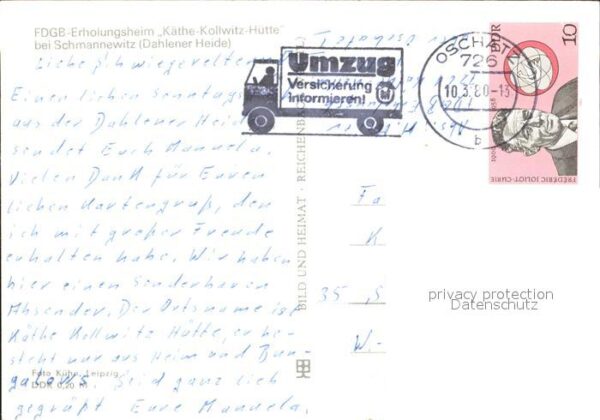 FDGB-Erholungsheim „Käthe-Kollwitz-Hütte"
bei Schmannewitz (Dahlener Heide)
Liebe Schwiegereltern
Einen lieben Sonntags
aus der Dahlener Heide
sendet Euch Manuela.
Vielen Dank für Euren
lieben Kartengruß, den
ich mit großer Freude
erhalten habe. Wir haben
hier einen sonderbaren
Absender. Der Ortsname ist
Käthe Kollwitz Hütte, er be-
steht nur aus Heim und Bun-
galows. Seid ganz lieb
gegrüßt Eure Manuela.
Foto Kühn, Leipzig
DDR 0,20 M
BILD UND HEIMAT · REICHENBACH
Umzug
Versicherung
informieren!
OSCHATZ
726
10.3.80-13
b
DDR
10
1900
1958
FRÉDÉRIC JOLIOT-CURIE
Fa
K
35 S
W.-
privacy protection
Datenschutz